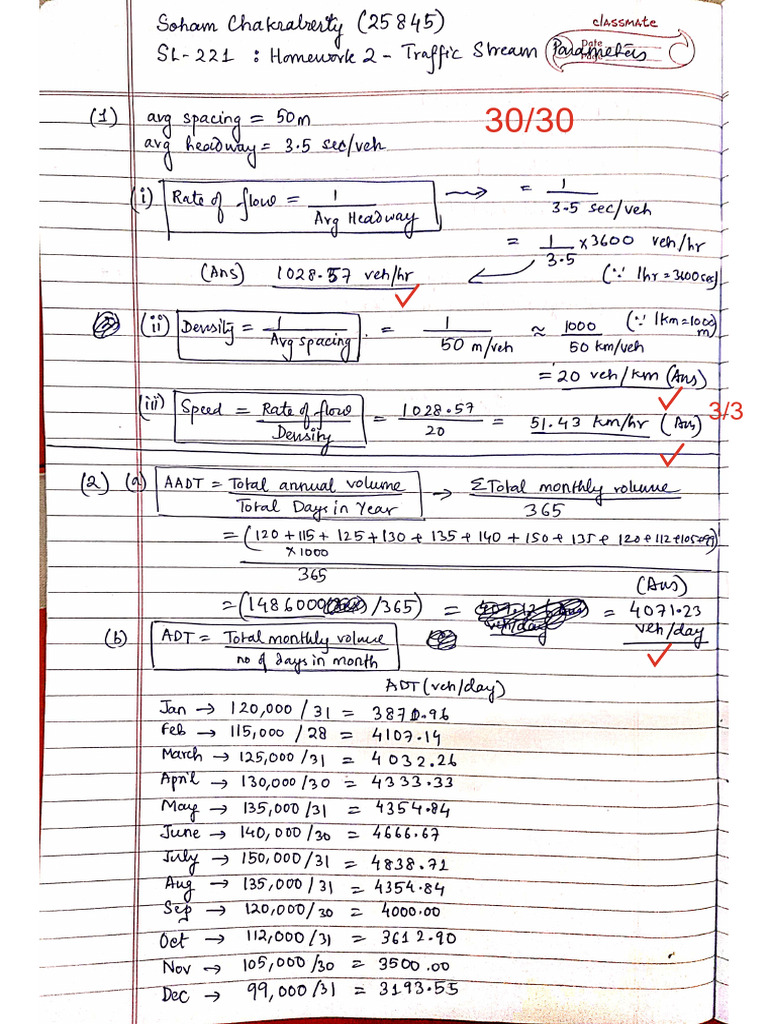 Soham Chakraborty (25845)
classmate
Date
Page
SL-221 : Homework 2 - Traffic Stream Parameters
(1) avg spacing = 50m
30/30
avg headway = 3.5 sec/veh
(i) Rate of flow = 1 / Avg Headway → = 1 / 3.5 sec/veh
= 1 / 3.5 × 3600 veh/hr
(Ans) 1028.57 veh/hr (∵ 1hr = 3600 sec)
(ii) Density = 1 / Avg spacing = 1 / 50 m/veh ≈ 1000 / 50 km/veh (∵ 1km = 1000 m)
= 20 veh/km (Ans)
(iii) Speed = Rate of flow / Density = 1028.57 / 20 = 51.43 km/hr (Ans)
3/3
(2) (a) AADT = Total annual volume / Total Days in Year → Σ Total monthly volume / 365
= (120 + 115 + 125 + 130 + 135 + 140 + 150 + 135 + 120 + 112 + 105 + 99)
× 1000
365
(Ans)
= (1486000 / 365) = = 4071.23
veh/day
(b) ADT = Total monthly volume / no of days in month
ADT (veh/day)
Jan → 120,000 / 31 = 3870.96
Feb → 115,000 / 28 = 4107.14
March → 125,000 / 31 = 4032.26
April → 130,000 / 30 = 4333.33
May → 135,000 / 31 = 4354.84
June → 140,000 / 30 = 4666.67
July → 150,000 / 31 = 4838.71
Aug → 135,000 / 31 = 4354.84
Sep → 120,000 / 30 = 4000.00
Oct → 112,000 / 31 = 3612.90
Nov → 105,000 / 30 = 3500.00
Dec → 99,000 / 31 = 3193.55